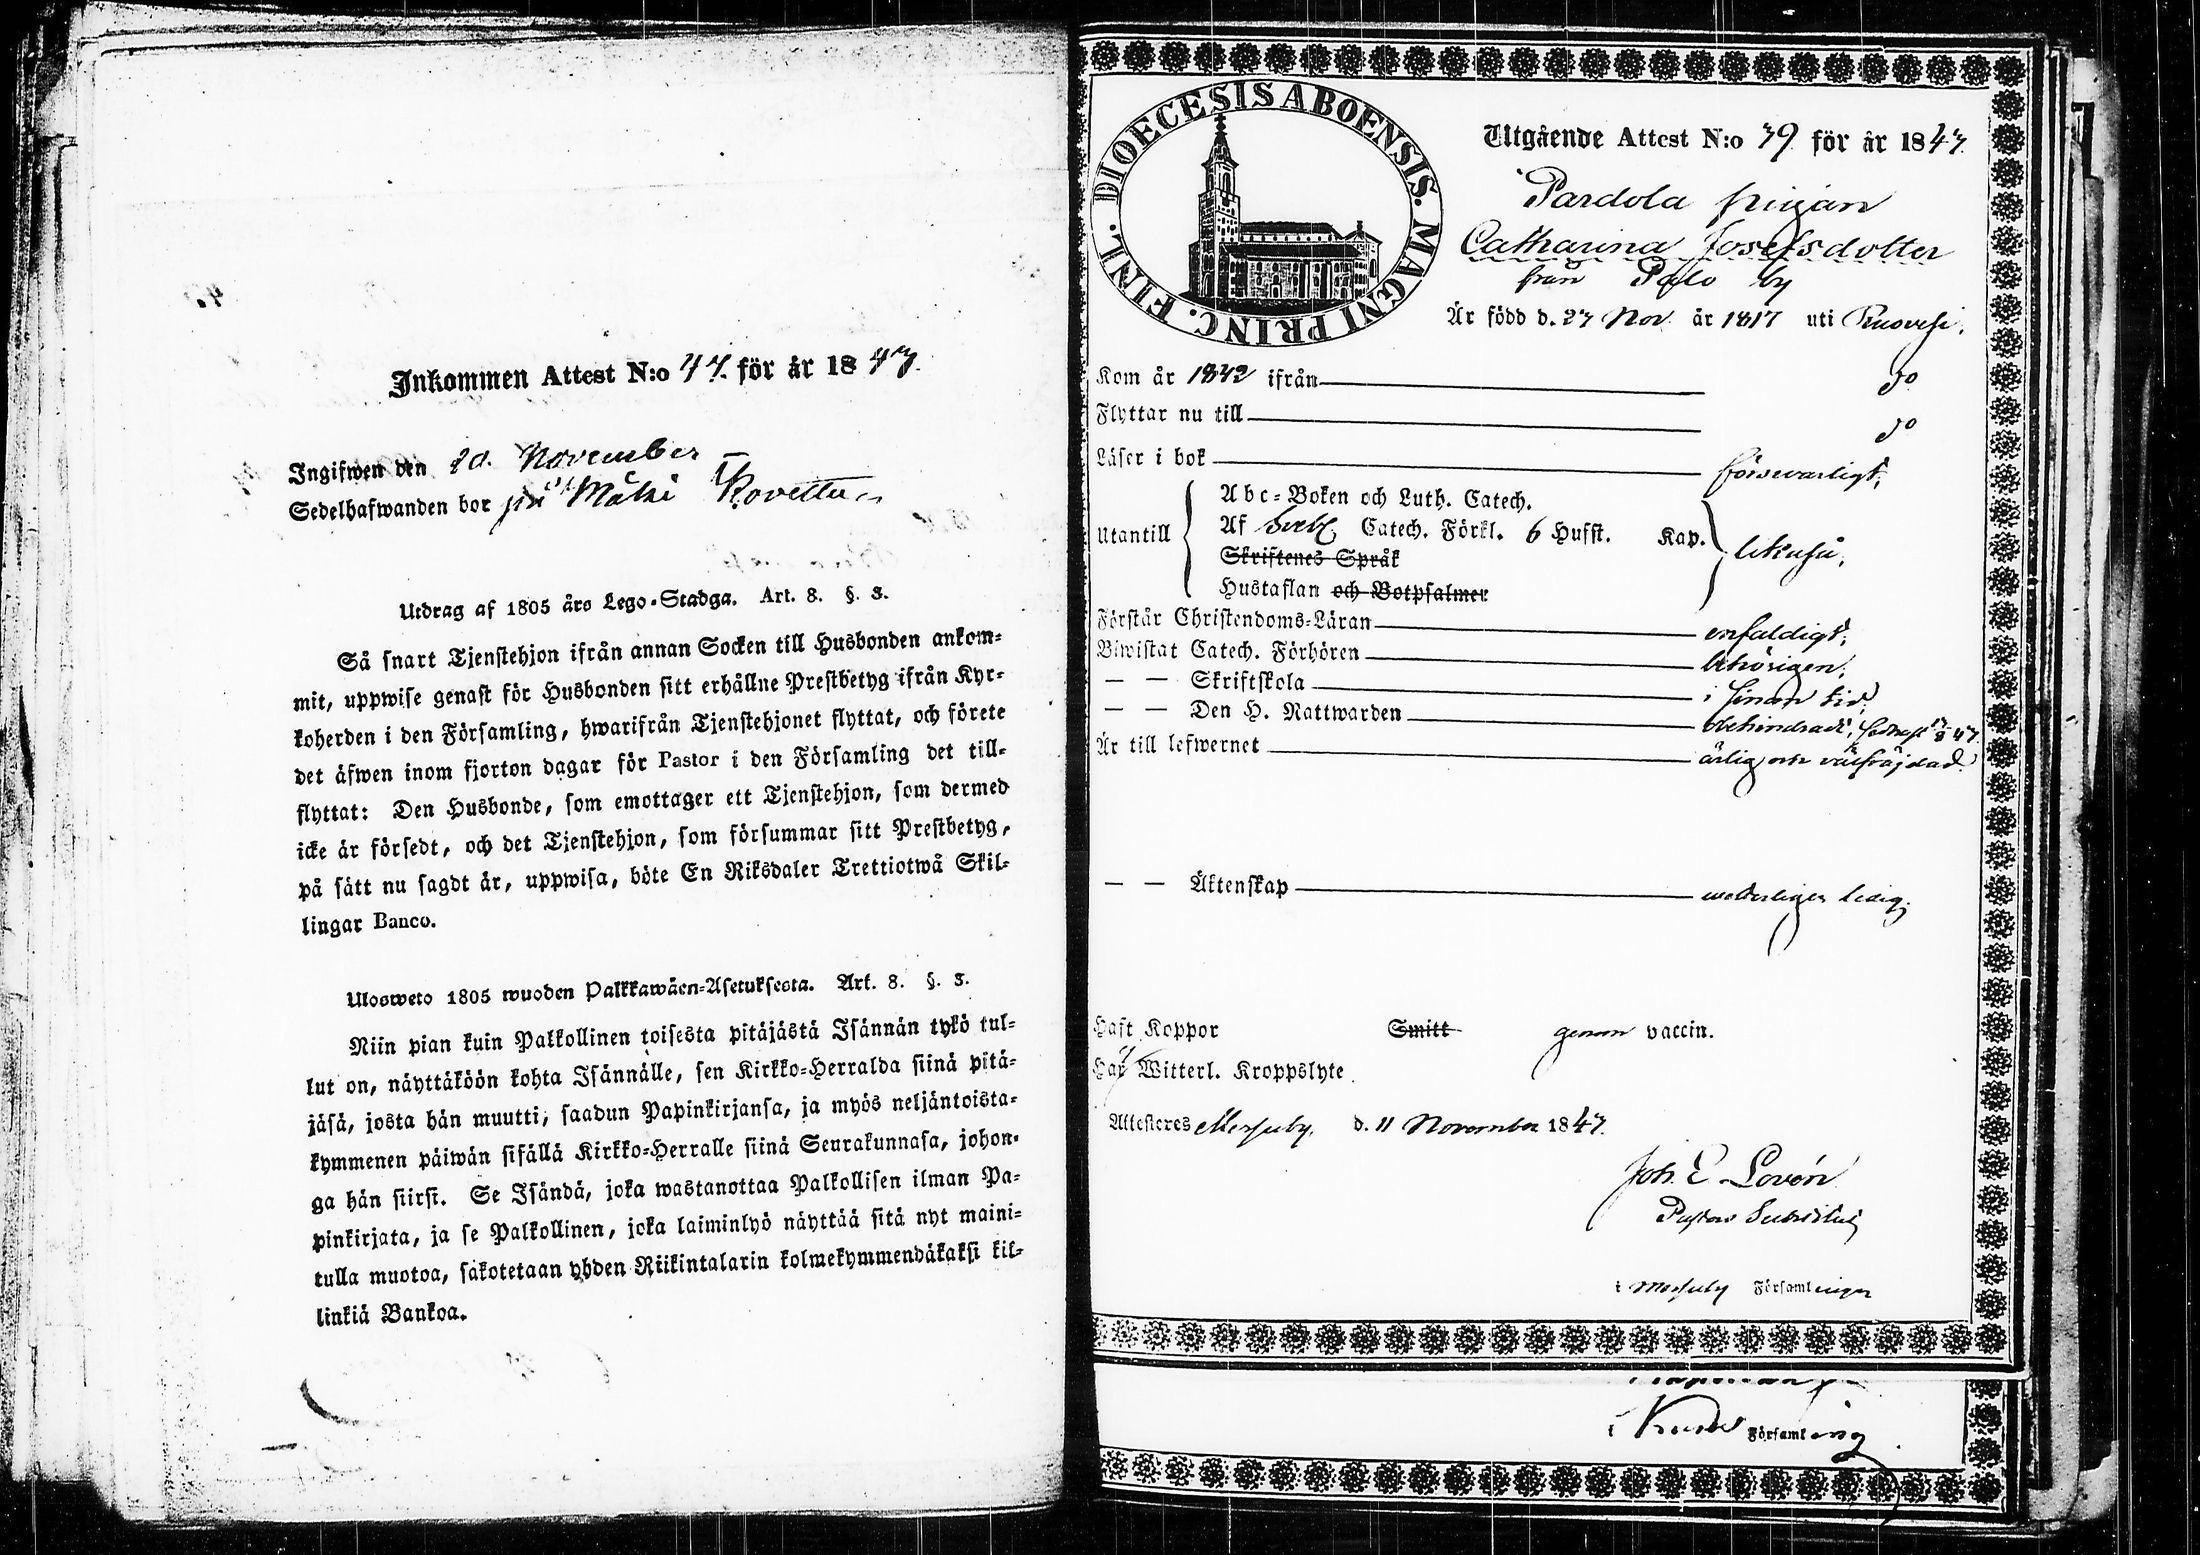 Inkommen Attest N:o 47. för år 1847.
Ingifwen den 20. November
Sedelhafwanden bor på Mäki
Utdrag af 1805 års Lego-Stadga. Art. 8. §. 3.
Så snart Tjenstehjon ifrån annan Socken till Husbonden ankom-
mit, uppwise genast för Husbonden sitt erhållne Prestbetyg ifrån Kyr-
koherden i den Församling, hwarifrån Tjenstehjonet flyttat, och förete
det äfwen inom fjorton dagar för Pastor i den Församling det till-
flyttat: Den Husbonde, som emottager ett Tjenstehjon, som dermed
icke är försedt, och det Tjenstehjon, som försummar sitt Prestbetyg,
på sätt nu sagdt är, uppwisa, böte En Riksdaler Trettiotwå Skil-
lingar Banco.
Ulosweto 1805 wuoden Palkkawäen-Asetuksesta. Art. 8. §. 3.
Niin pian kuin Palkollinen toisesta pitäjästä Isännän tykö tul-
lut on, näyttäköön kohta Isännälle, sen Kirkko-Herralda siinä pitä-
jäsä, josta hän muutti, saadun Papinkirjansa, ja myös neljäntoista-
kymmenen päiwän sisällä Kirkko-Herralle siinä Seurakunnasa, johon-
ga hän siirsi. Se Isändä, joka wastanottaa Palkollisen ilman Pa-
pinkirjata, ja se Palkollinen, joka laiminlyö näyttää sitä nyt maini-
tulla muotoa, sakotetaan yhden Riikintalarin kolmekymmendäkaksi kil-
linkiä Bankoa.
DIOECESIS ABOENSIS. MAGNI PRINC. FINL.
Utgående Attest N:o 79 för år 1847.
Pardola pigan
Catharina Josefsdotter
från Palo by
Är född d. 27 Nov. år 1817 uti Ruovesi.
Kom år 1842 ifrån do
Flyttar nu till do
Läser i bok försvarligt,
Utantill
Abc-Boken och Luth. Catech.
Af Svebl. Catech. Förkl. 6 Hufst. Kap. likaså,
Skriftenes Språk
Hustaflan och Botpsalmer
Förstår Christendoms-Läran enfaldigt,
Biwistat Catech. Förhören behörigen,
— — Skriftskola i sinom tid,
— — Den H. Nattwarden obehindradt,
Är till lefwernet ärlig och välfräjdad.
— — Äktenskap wederligen ledig.
Haft Koppor Smitt genom vaccin.
Har Witterl. Kroppslyte.
Attesteres Messuby, d. 11 November 1847.
Joh. E. Lovén
Pastors Substitut
i Messuby Församlingar
i Församling